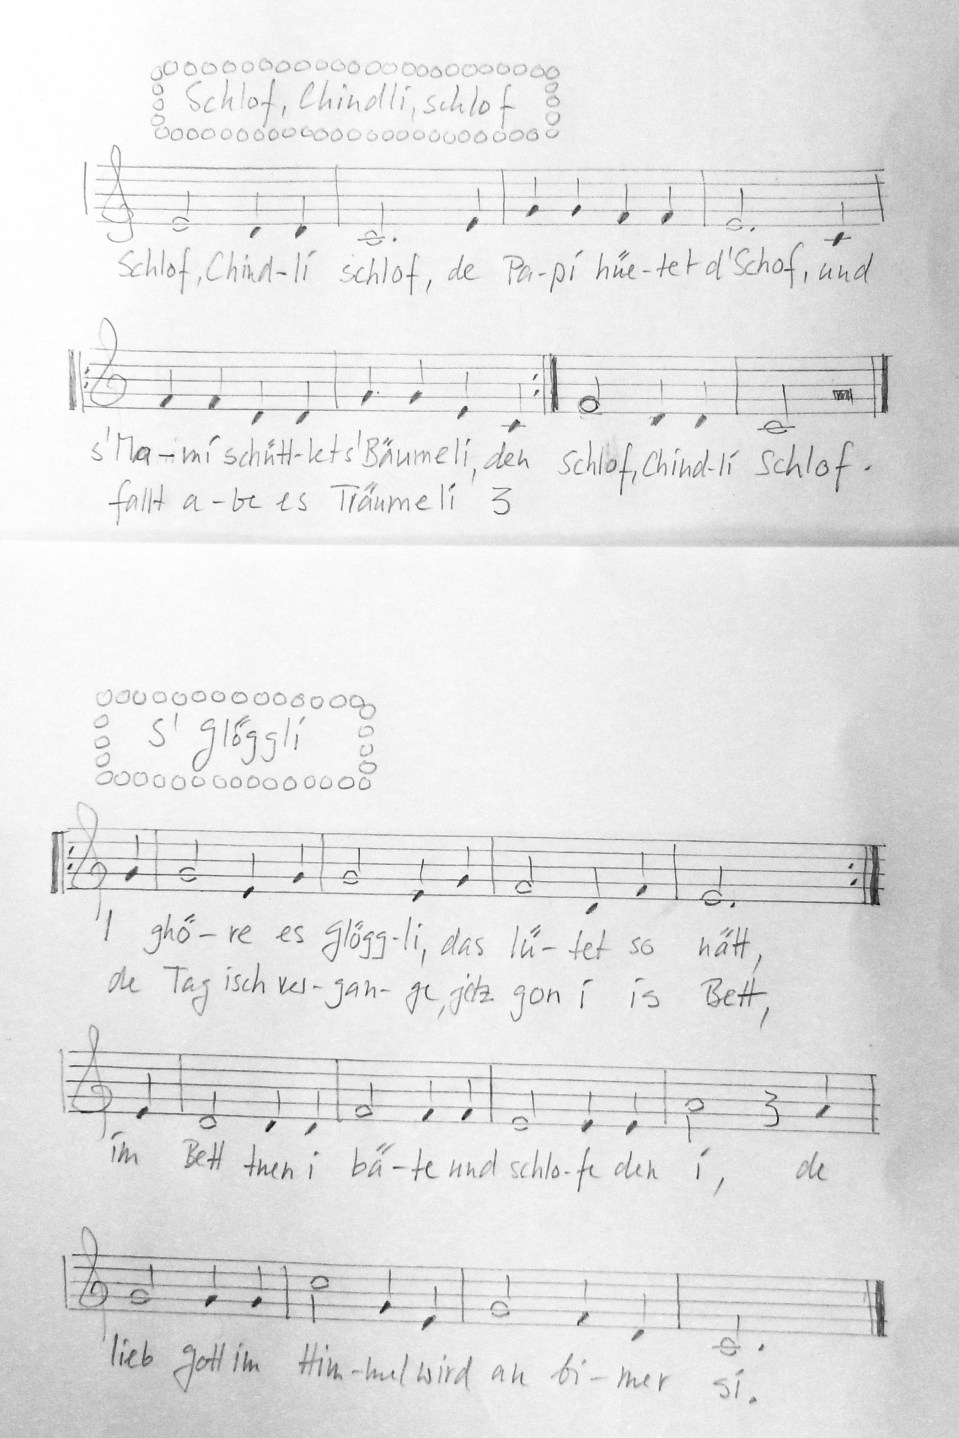 Schlof, Chindli, schlof
Schlof, Chind-li schlof, de Pa-pi hüe-tet d'Schof, und
s'Ma-mi schütt-let s'Bäumeli, den schlof, Chind-li schlof.
fallt a-be es Träumeli
S' Glöggli
I ghö-re es Glögg-li, das lü-tet so nätt,
de Tag isch ver-gan-ge, jetz gon i is Bett,
im Bett tuen i bä-te und schlo-fe den i, de
lieb Gott im Him-mel wird au bi-mer si.